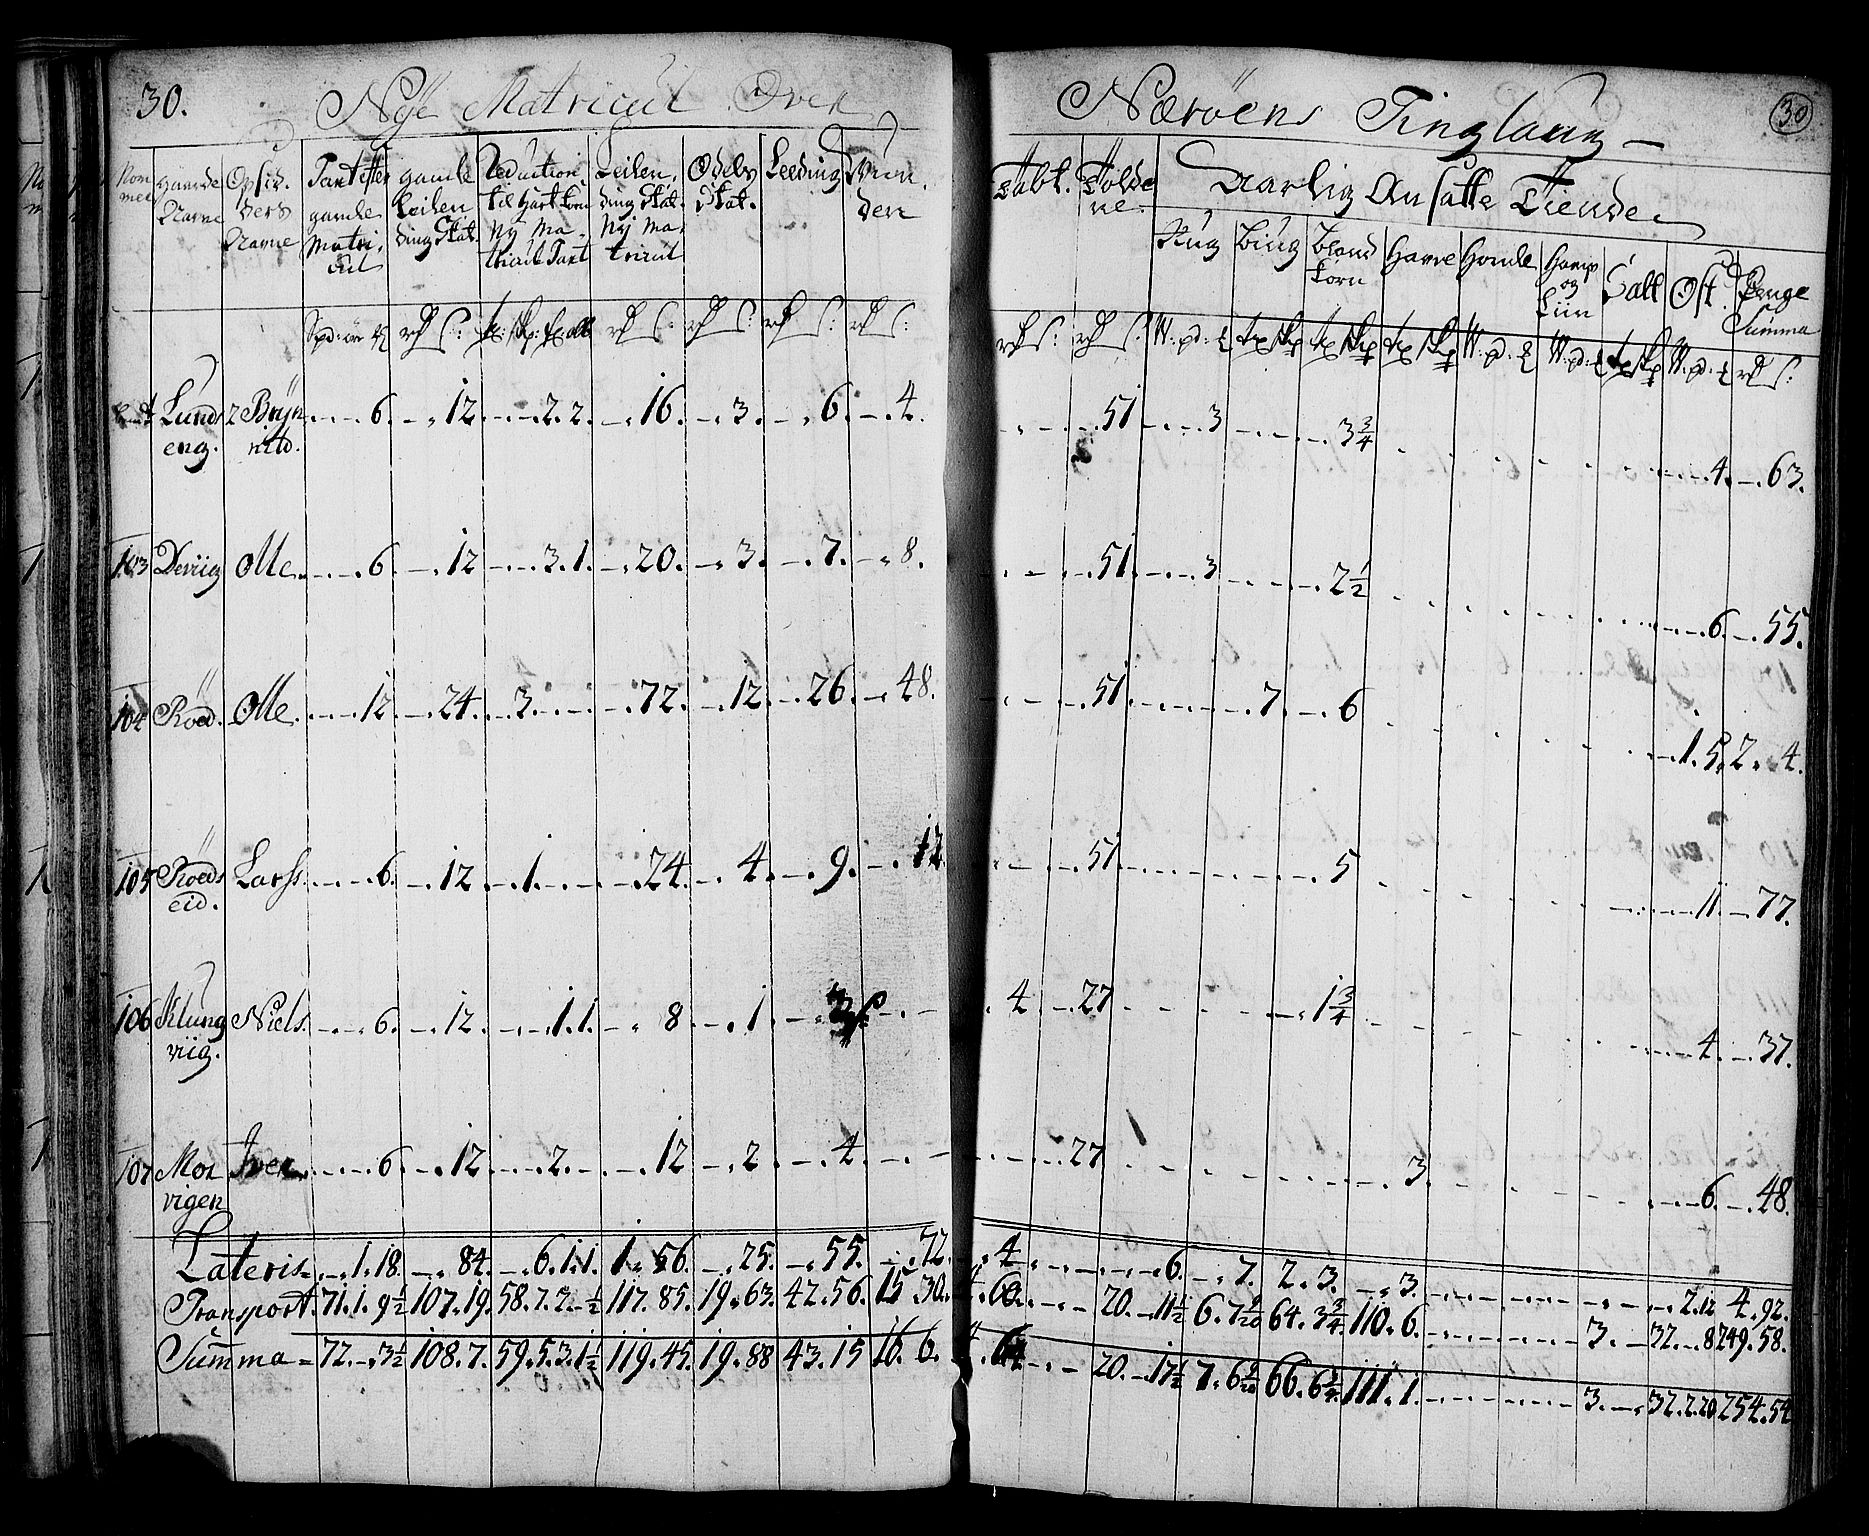 30. Nÿe Matricul Over Næröens Tinglaug 30
Nom mer | gaarde Navne | Opsid. ders Navne | Taxt efter gamle Matri. cul | gamle Leilen ding Skat. | Reduction til Hart korn Nÿ Ma. tricul Taxt | Leilen. ding Skat. Nÿ Ma. tricul | Odels Skat. | Leeding | | | | Aarlig Ansatte Tiende.
Rug | Biug | Bland korn | Havre | Homle | Hamp og Liin | Salt | Ost. | Penge Summa
Lunds eng. | 2 Brÿn nild. | 6. | 12. | 2. 2. | 16. | 3. | 6. | 4. | 51. | 3 | 3 3/4 | 4. | 63.
103 | Deviig | Olle. | 6. | 12 | 3. 1. | 20. | 3. | 7. | 8. | 51. | 3 | 2 1/2 | 6. | 55.
104 | Röed. | Olle. | 12. | 24. | 3. | 72. | 12. | 26. | 48. | 51. | 7. | 6 | 1. 5. | 2. 4.
105 | Röeds eid. | Larss. | 6. | 12. | 1. | 24. | 4. | 9. | 12. | 51. | 5 | 11. | 77.
106 | Klung viig. | Niels. | 6. | 12. | 1. 1. | 8 | 1. | 4 | 27 | 1 3/4 | 4. | 37.
107 | Mor vigen | Iver. | 6. | 12. | 2. | 12 | 2 | 4. | 27 | 3. | 6. | 48.
Lateris | 1. 18. | 84. | 6. 1. 1. | 1. 56. | 25. | 55. | 72. | 4 | 6. | 7. | 2. 3. | 3. | 2. 12 | 4. 92.
Transport. | 71. 1. 9 1/2 | 107. 19. | 58. 7. 2 1/2 | 117. 85. | 19. 63. | 42. 56. | 15 30. | 60. | 20. 11 1/2 | 6. 7 9/20 | 64. 3 3/4 | 110. 6. | 3. | 32. 8 | 249. 58.
Summa | 72. 3 1/2 | 108. 7. | 59. 5. 3. 1 1/2 | 119. 45. | 19. 88 | 43. 15 | 16. 6. | 64 | 20. 17 1/2 | 7. 6 9/20 | 66. 6 3/4 | 111. 1. | 3. | 32. 2. 20 | 254. 54